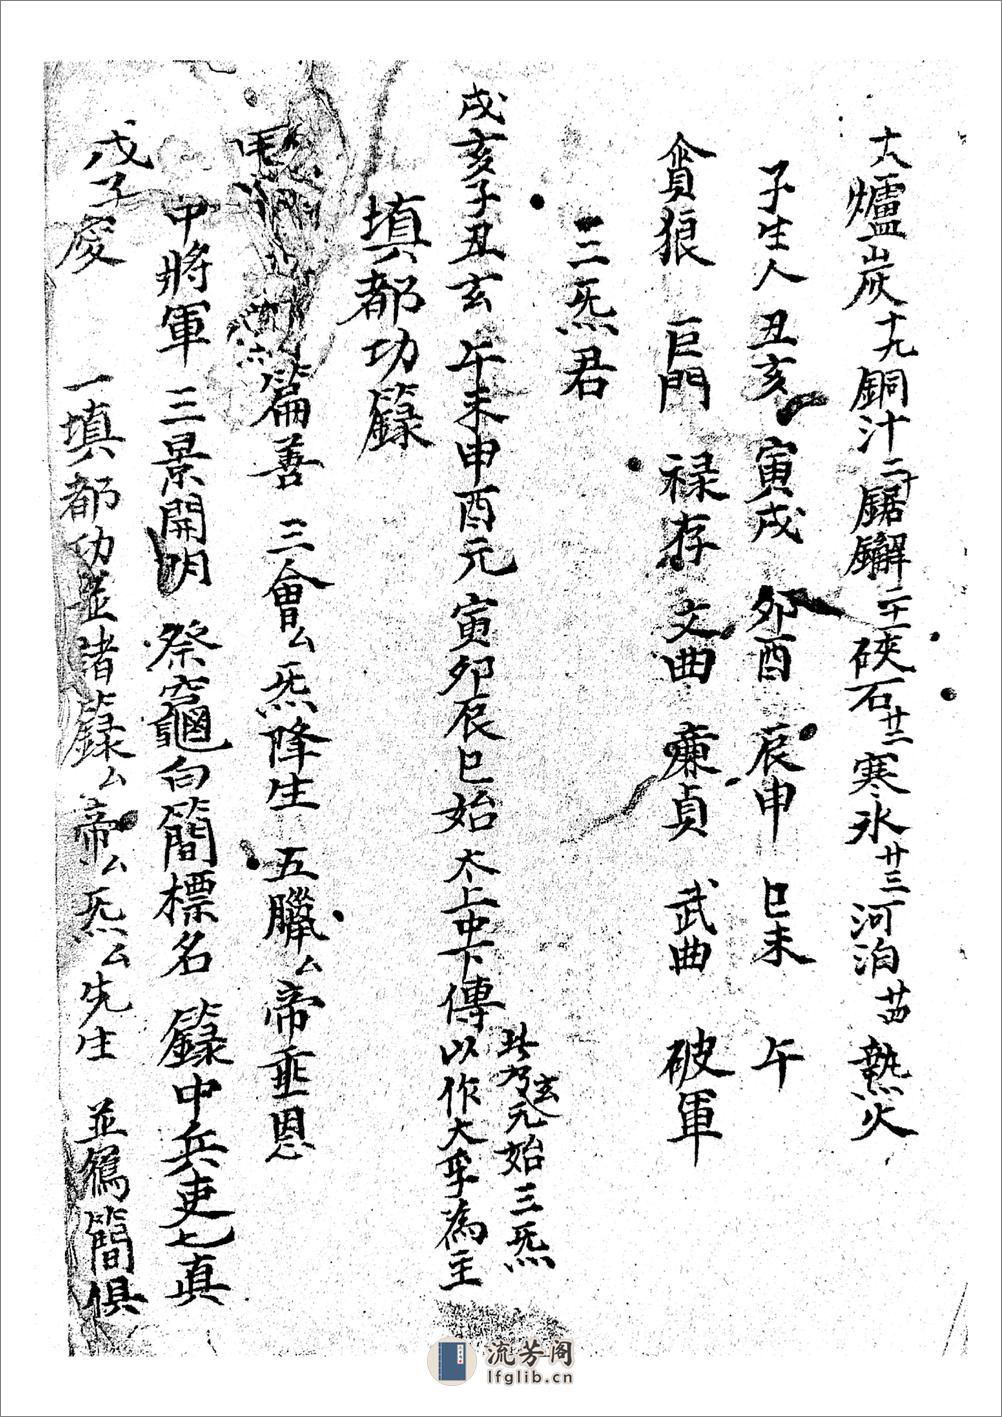 十八爐炭十九銅汁二十鋸解二十一硤石廿二寒氷廿三河泊廿四熱火
子生人 丑亥 寅戌 卯酉 辰申 巳未 午
貪狼 巨門 禄存 文曲 廉貞 武曲 破軍
三炁君
戌亥子丑玄 午未申酉元 寅卯辰巳始 太上中下傳以作大孚為主
此乃玄元始三炁
填都功籙
篇善 三會厶炁降生 五臘厶帝垂恩
中將軍 三景開明 祭竈白簡標名 籙中兵吏七真
戊子度 一填都功並諸籙厶帝厶炁厶先生 並鴈簡俱
流芳阁
lfglib.cn